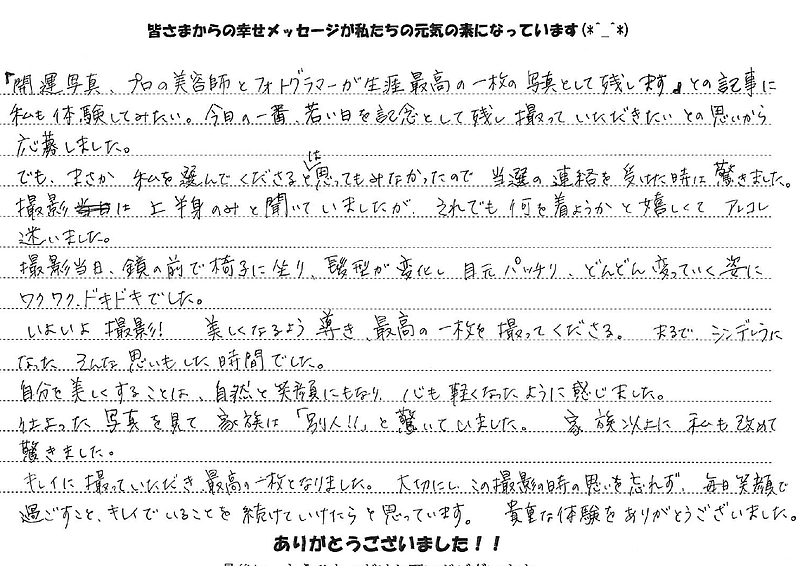 皆さまからの幸せメッセージが私たちの元気の素になっています(*^_^*)
『開運写真、プロの美容師とフォトグラマーが生涯最高の一枚の写真として残します』との記事に
私も体験してみたい。今日の一番、若い日を記念として残し撮っていただきたいとの思いから
応募しました。
でも、まさか私を選んでくださるとは思ってもみなかったので当選の連絡を受けた時は驚きました。
撮影は上半身のみと聞いていましたが、それでも何を着ようかと嬉しくてアレコレ
迷いました。
撮影当日、鏡の前で椅子に坐り、髪型が変化し目元パッチリ、どんどん変っていく姿に
ワクワク、ドキドキでした。
いよいよ撮影! 美しくなるよう導き、最高の一枚を撮ってくださる。 まるで、シンデレラに
なったそんな思いもした時間でした。
自分を美しくすることは、自然と笑顔にもなり、心も軽くなったように感じました。
仕上った写真を見て家族は「別人!!」と驚いていました。 家族以上に私も改めて
驚きました。
キレイに撮っていただき最高の一枚となりました。 大切にし、この撮影の時の思いを忘れず、毎日笑顔で
過ごすこと、キレイでいることを続けていけたらと思っています。 貴重な体験をありがとうございました。
ありがとうございました!!